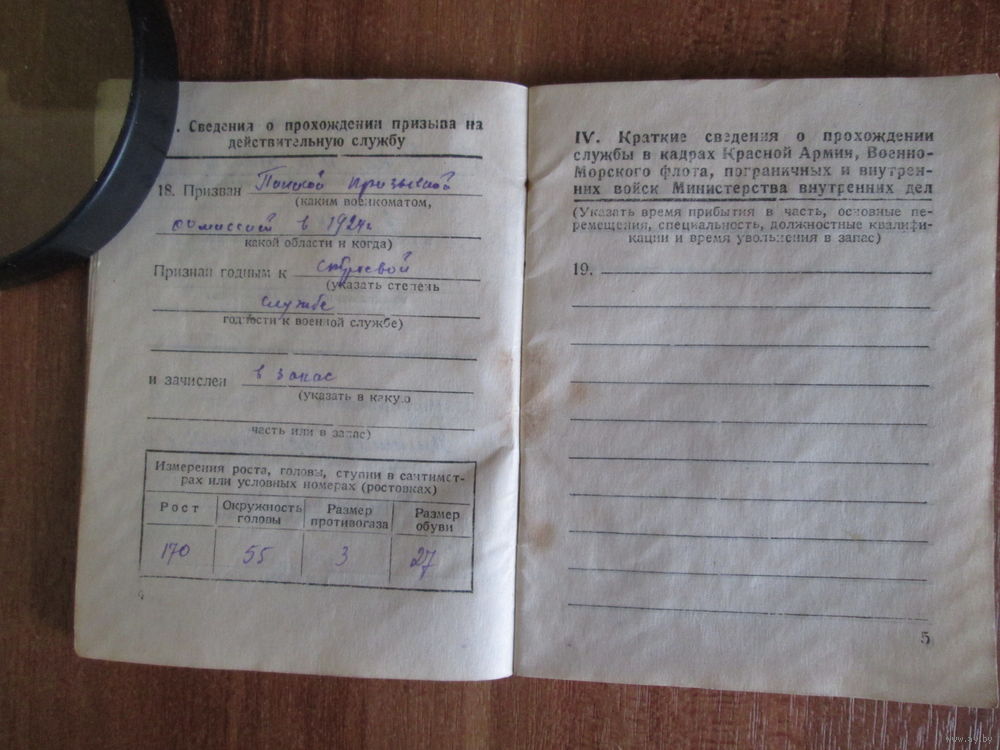 . Сведения о прохождении призыва на
действительную службу
18. Призван призывной
(каким военкоматом,
комиссией в 1924г
какой области и когда)
Признан годным к строевой
(указать степень
службе
годности к военной службе)
и зачислен в запас
(указать в какую
часть или в запас)
Измерения роста, головы, ступни в сантимет-
рах или условных номерах (ростовках)
Рост Окружность головы Размер противогаза Размер обуви
170 55 3 27
4
IV. Краткие сведения о прохождении
службы в кадрах Красной Армии, Военно-
Морского флота, пограничных и внутрен-
них войск Министерства внутренних дел
(Указать время прибытия в часть, основные пе-
ремещения, специальность, должностные квалифи-
кации и время увольнения в запас)
19.
5
www.ay.by